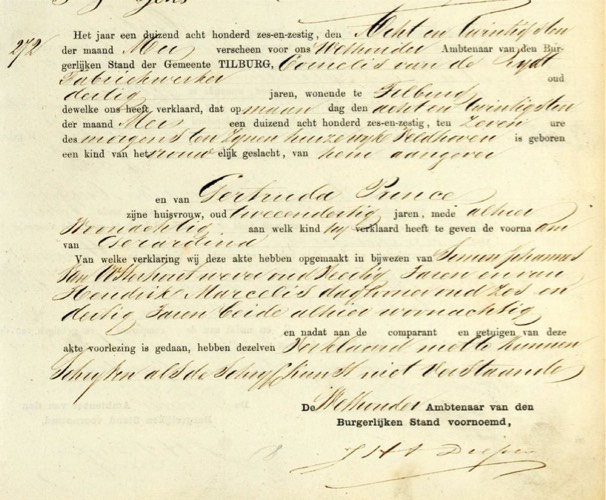 272
Het jaar een duizend acht honderd zes-en-zestig, den Acht en twintigsten
der maand Mei verscheen voor ons Wethouder Ambtenaar van den Bur-
gerlijken Stand der Gemeente TILBURG, Cornelis van de
Fabriekwerker oud
dertig jaren, wonende te Tilburg
dewelke ons heeft verklaard, dat op maan dag den achten twintigsten
der maand Mei een duizend acht honderd zes-en-zestig, ten zeven ure
des morgens ten zijnen huize wijk Veldhoven is geboren
een kind van het vrouw elijk geslacht, van hem aangever
en van Gertruda Prince
zijne huisvrouw, oud tweeendertig jaren, mede alhier
Woonachtig aan welk kind hij verklaard heeft te geven de voorna am
van Gerardina
Van welke verklaring wij deze akte hebben opgemaakt in bijwezen van Simon Johannes
Van wever oud Jaren en van
Hendrik Marcelis daglooner oud Zes en
dertig Jaren beide alhier woonachtig
en nadat aan de comparant en getuigen van deze
akte voorlezing is gedaan, hebben dezelven Verklaard niet te kunnen
Schrijven als de Schrijfkunst niet verstaande
De Wethouder Ambtenaar van den
Burgerlijken Stand voornoemd,